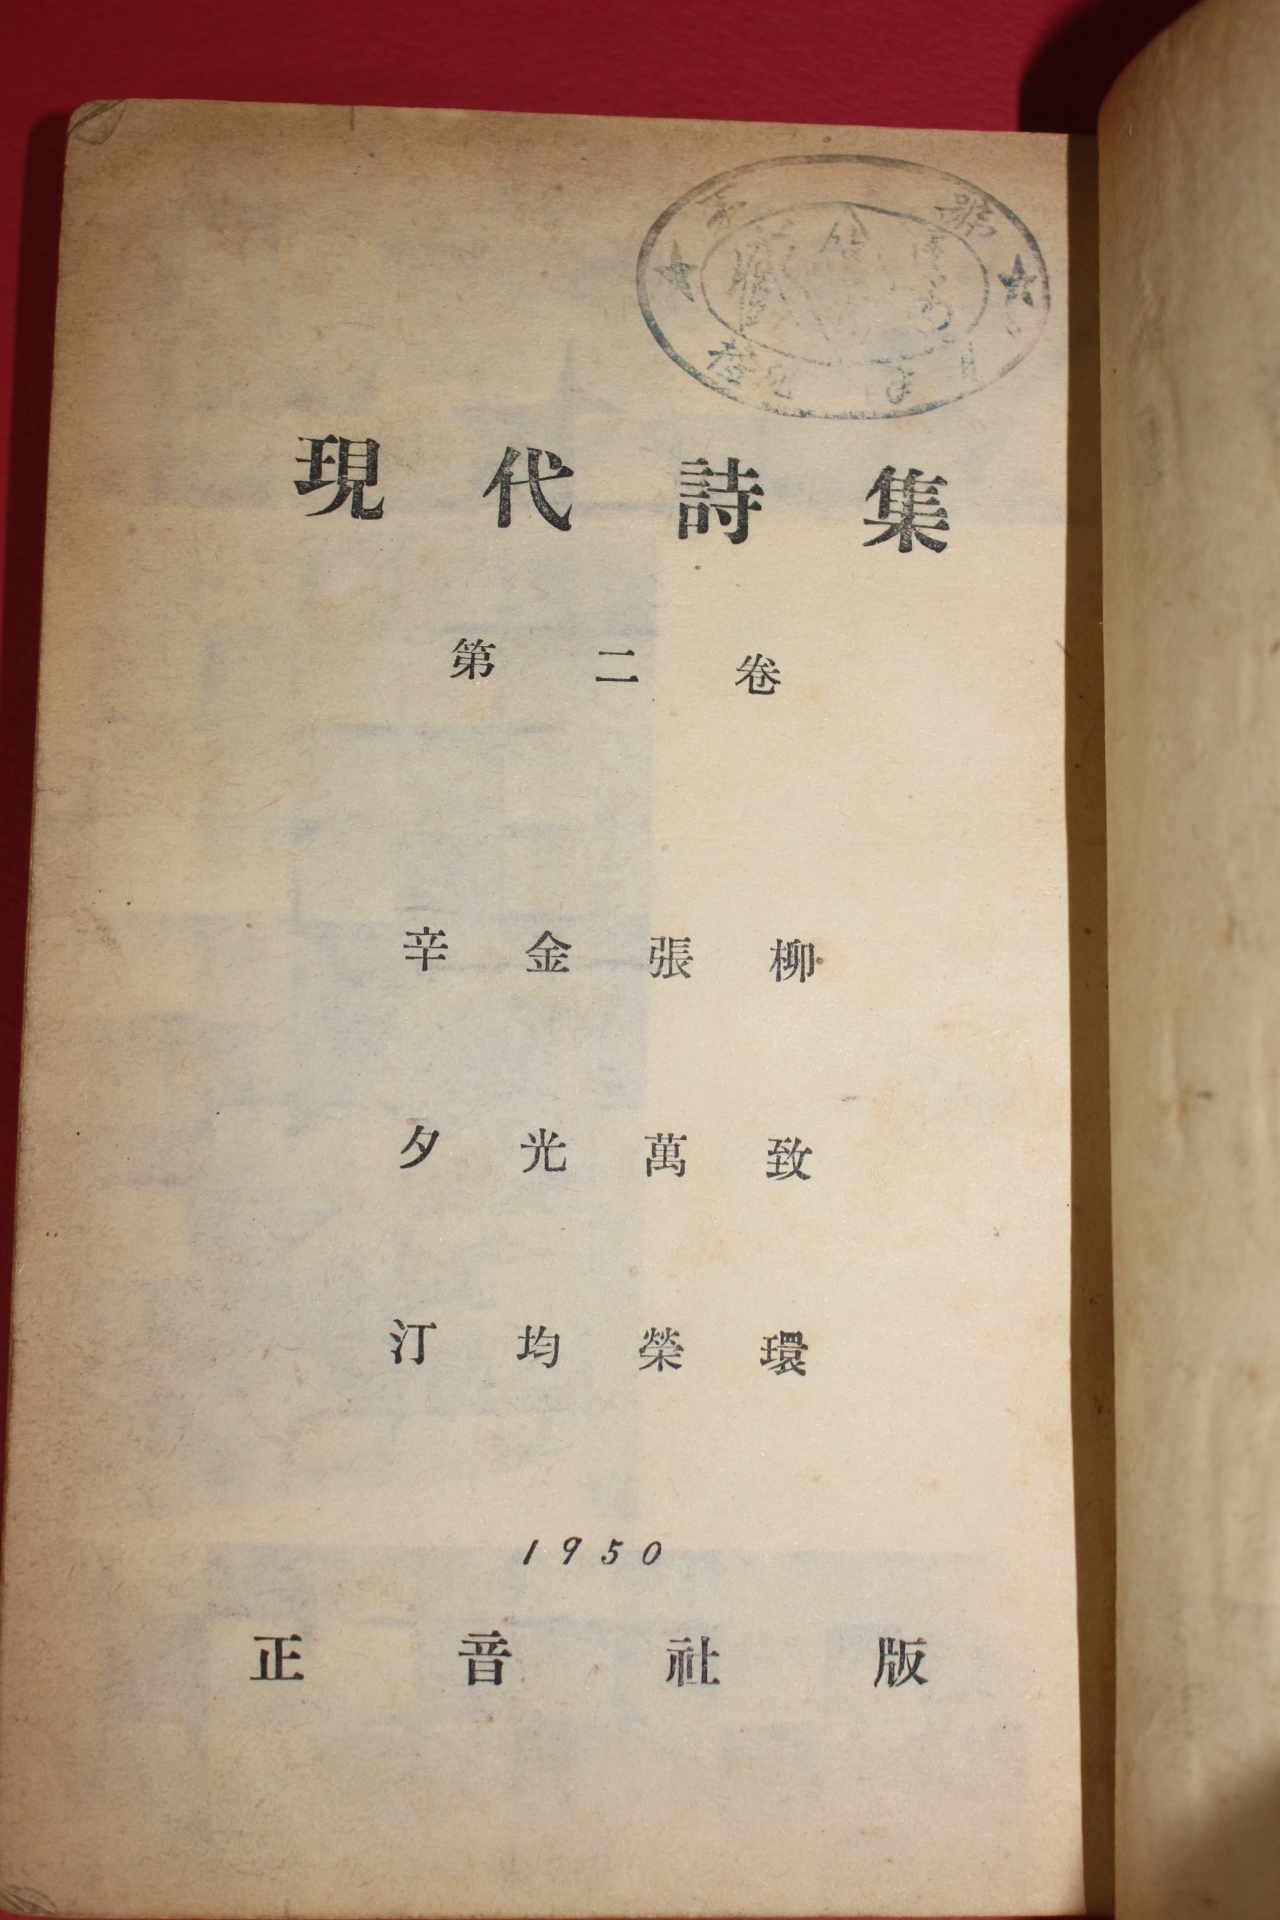 現代詩集
第二卷
辛夕汀
金光均
張萬榮
柳致環
1950
正音社版